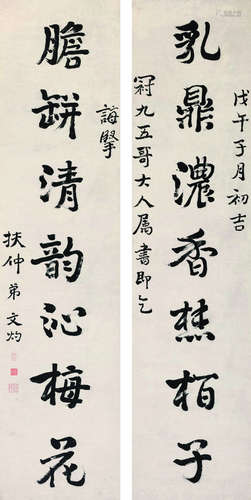 戊午子月初吉
乳鼎濃香柏子
冠九五哥大人属書即乞
誨
膽缾清韵沁梅花
扶仲弟文灼